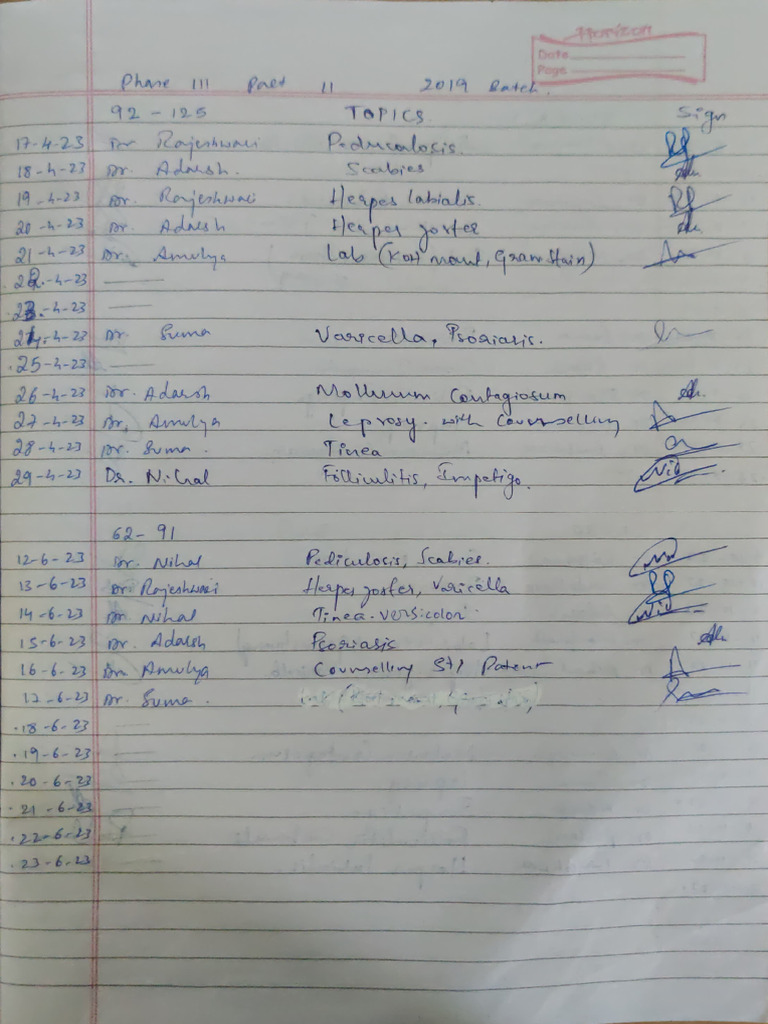 Horizon
Date
Page
Phase III Part II 2019 Batch.
92 - 125 TOPICS Sign
17-4-23 Dr Rajeshwari Pediculosis.
18-4-23 Dr. Adarsh. Scabies
19-4-23 Dr. Rajeshwari Herpes labialis.
20-4-23 Dr. Adarsh Herpes zoster
21-4-23 Dr. Amulya Lab (KOH mount, Gram Stain)
22-4-23 —
23-4-23 —
24-4-23 Dr. Suma Varicella, Psoriasis.
25-4-23 —
26-4-23 Dr. Adarsh Molluscum Contagiosum
27-4-23 Dr. Amulya Leprosy. with Counselling
28-4-23 Dr. Suma. Tinea
29-4-23 Dr. Nihal Folliculitis, Impetigo.
62-91
12-6-23 Dr. Nihal Pediculosis, Scabies.
13-6-23 Dr Rajeshwari Herpes zoster, Varicella
14-6-23 Dr. Nihal Tinea-versicolor
15-6-23 Dr. Adarsh Psoriasis
16-6-23 Dr. Amulya Counselling STI Patient
17-6-23 Dr. Suma.
18-6-23
19-6-23
20-6-23
21-6-23
22-6-23
23-6-23